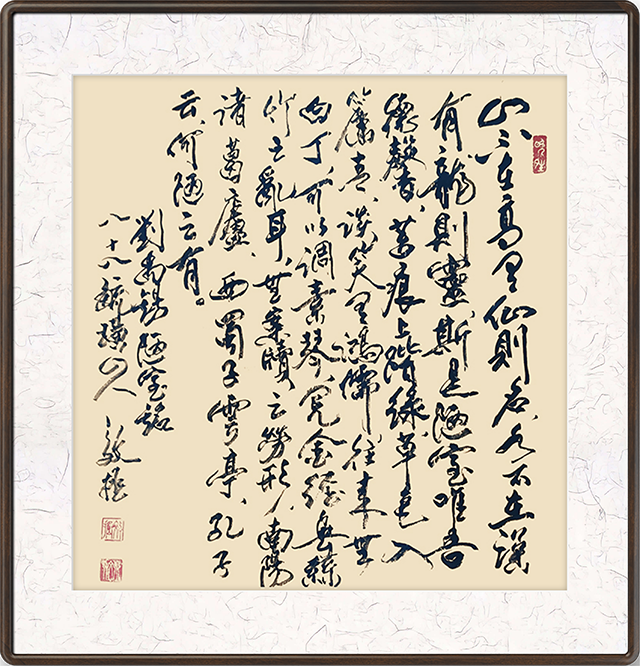 山不在高有仙則名水不在深
有龍則靈斯是陋室唯吾
德馨苔痕上階綠草色入
簾青談笑有鴻儒往來無
白丁可以調素琴閱金經無絲
竹之亂耳無案牘之勞形南陽
諸葛廬、西蜀子雲亭、孔子
云、何陋之有。
劉禹錫陋室銘
八十八